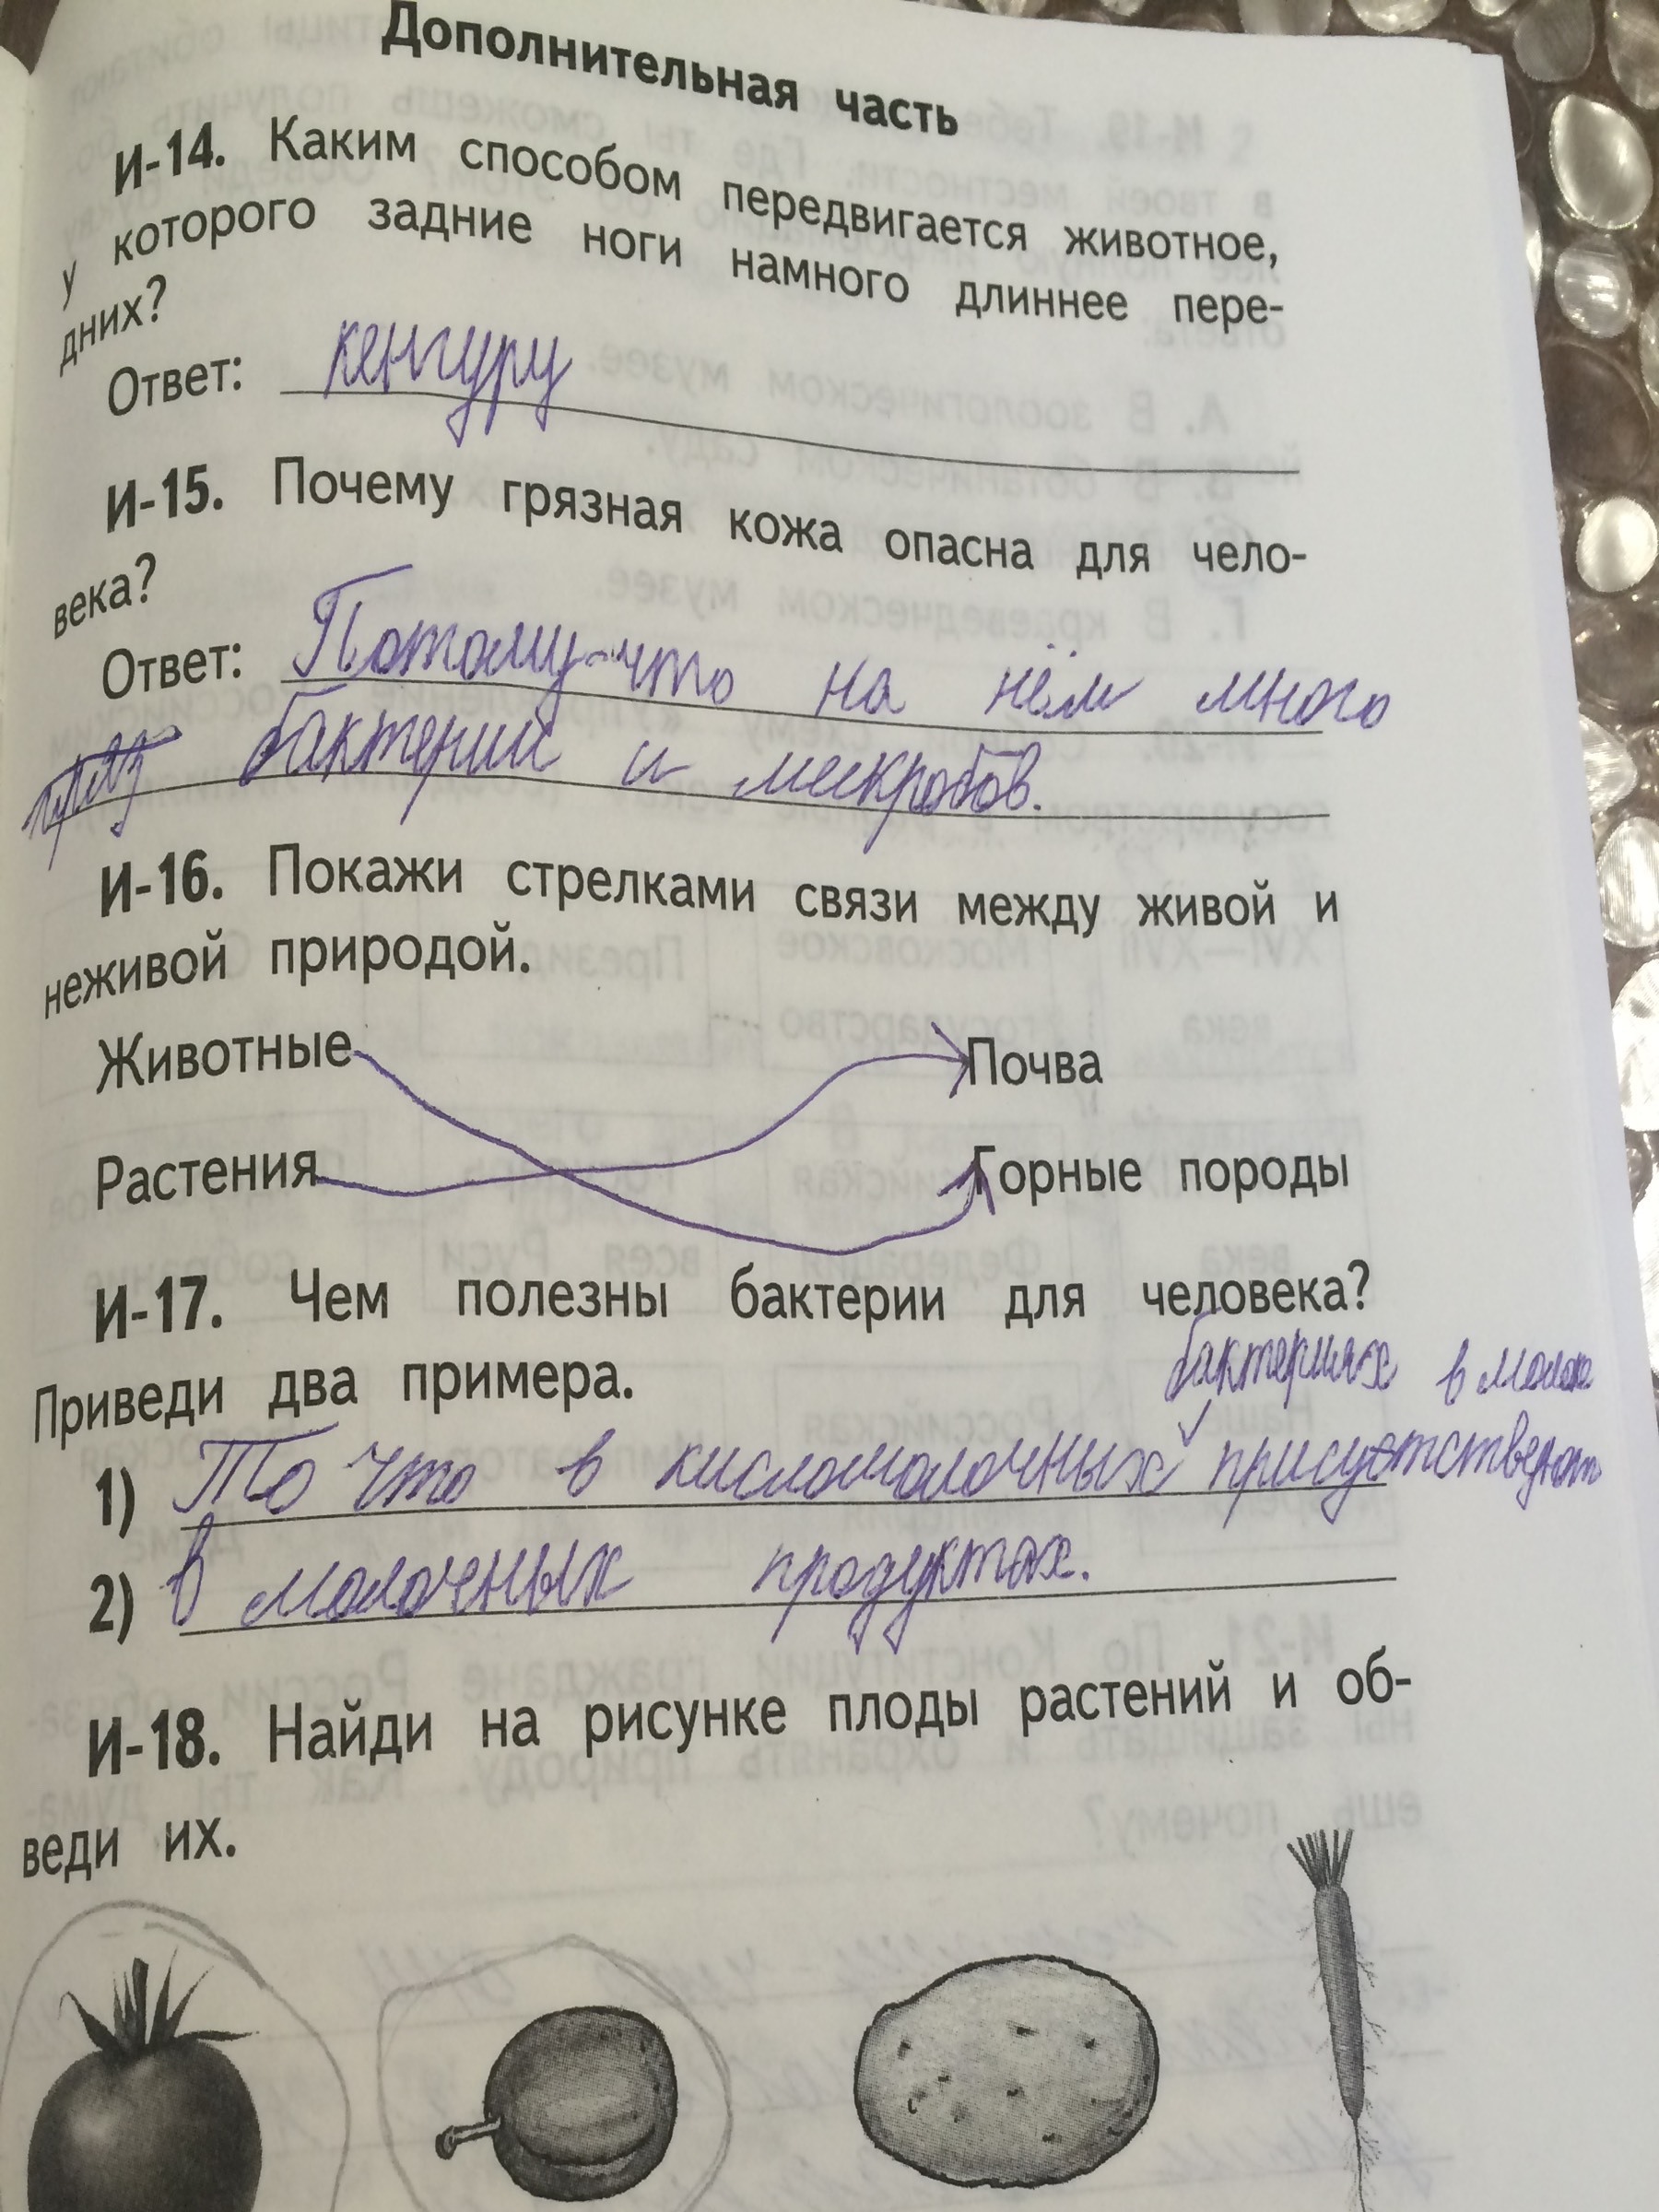 Дополнительная часть
И-14. Каким способом передвигается животное,
у которого задние ноги намного длиннее пере-
дних?
Ответ: кенгуру
И-15. Почему грязная кожа опасна для чело-
века?
Ответ: Потому-что на нём много
бактерий и микробов.
И-16. Покажи стрелками связи между живой и
неживой природой.
Животные Почва
Растения Горные породы
И-17. Чем полезны бактерии для человека?
Приведи два примера.
бактериях в
1) То что в кисломолочных присуотствуют
2) в молочных продуктах.
И-18. Найди на рисунке плоды растений и об-
веди их.